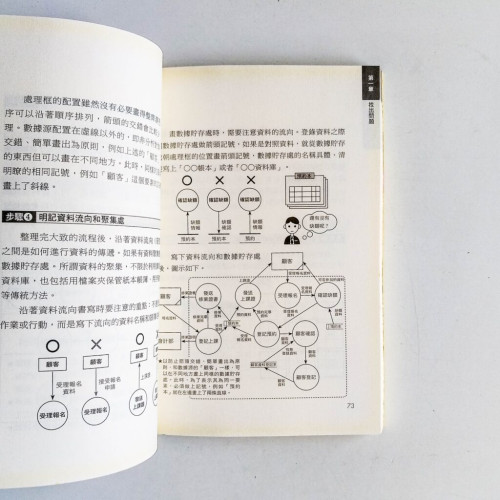 處理框的配置雖然沒有必要畫得整
序可以沿著順序排列，箭頭的交錯會比較
理。數據源配置在虛線以外的，即
交錯、簡單畫出為原則，例如上述的「顧
的東西但可以畫在不同地方。此時，
明瞭的相同記號，例如「顧客」這個要
畫上了斜線。
步驟4 明記資料流向和聚集處
整理完大致的流程後，沿著資料流向
之間是如何進行資料的傳遞。如果有資料
數據貯存處。所謂資料的聚集，不限於
資料庫，也包括用檔案夾保管紙本顧客
等傳統方法。
沿著資料流向書寫時要注意的重點：
作業或行動，而是寫下流向的資料名稱和
顧客
顧客
受理報名
資料
接受報名
申請
上課票
受理報名
受理報名
寄送
上課票
第一章
找出問題
畫數據貯存處時，需要注意資料的流向。登錄資料之際
數據貯存處做箭頭記號。如果是對照資料，就從數據貯存
朝處理框的位置畫箭頭記號。數據貯存處的名稱具體，清
寫上「○○帳本」或者「○○資料庫」。
確認缺額
確認缺額
確認缺額
缺額
情報
缺額
確認
缺額
情報
預約本
預約本
預約本
預約本
還有沒有
缺額呢？
寫下資料流向和數據貯存處
後，圖示如下。
顧客
徵收
未繳書費
寄送
上課票
受理報名
確認缺額
會計部
登記上課
登記預約
顧客確認
顧客登記
預約本
★以防止箭頭交錯，簡單畫出為原
則，和數據源的「顧客」一樣，可
以在不同地方畫上同樣的數據貯存
處。此時，為了表示其為同一要
素，必須做上記號，例如「預約
本」就在右邊畫上了兩條直線。
73